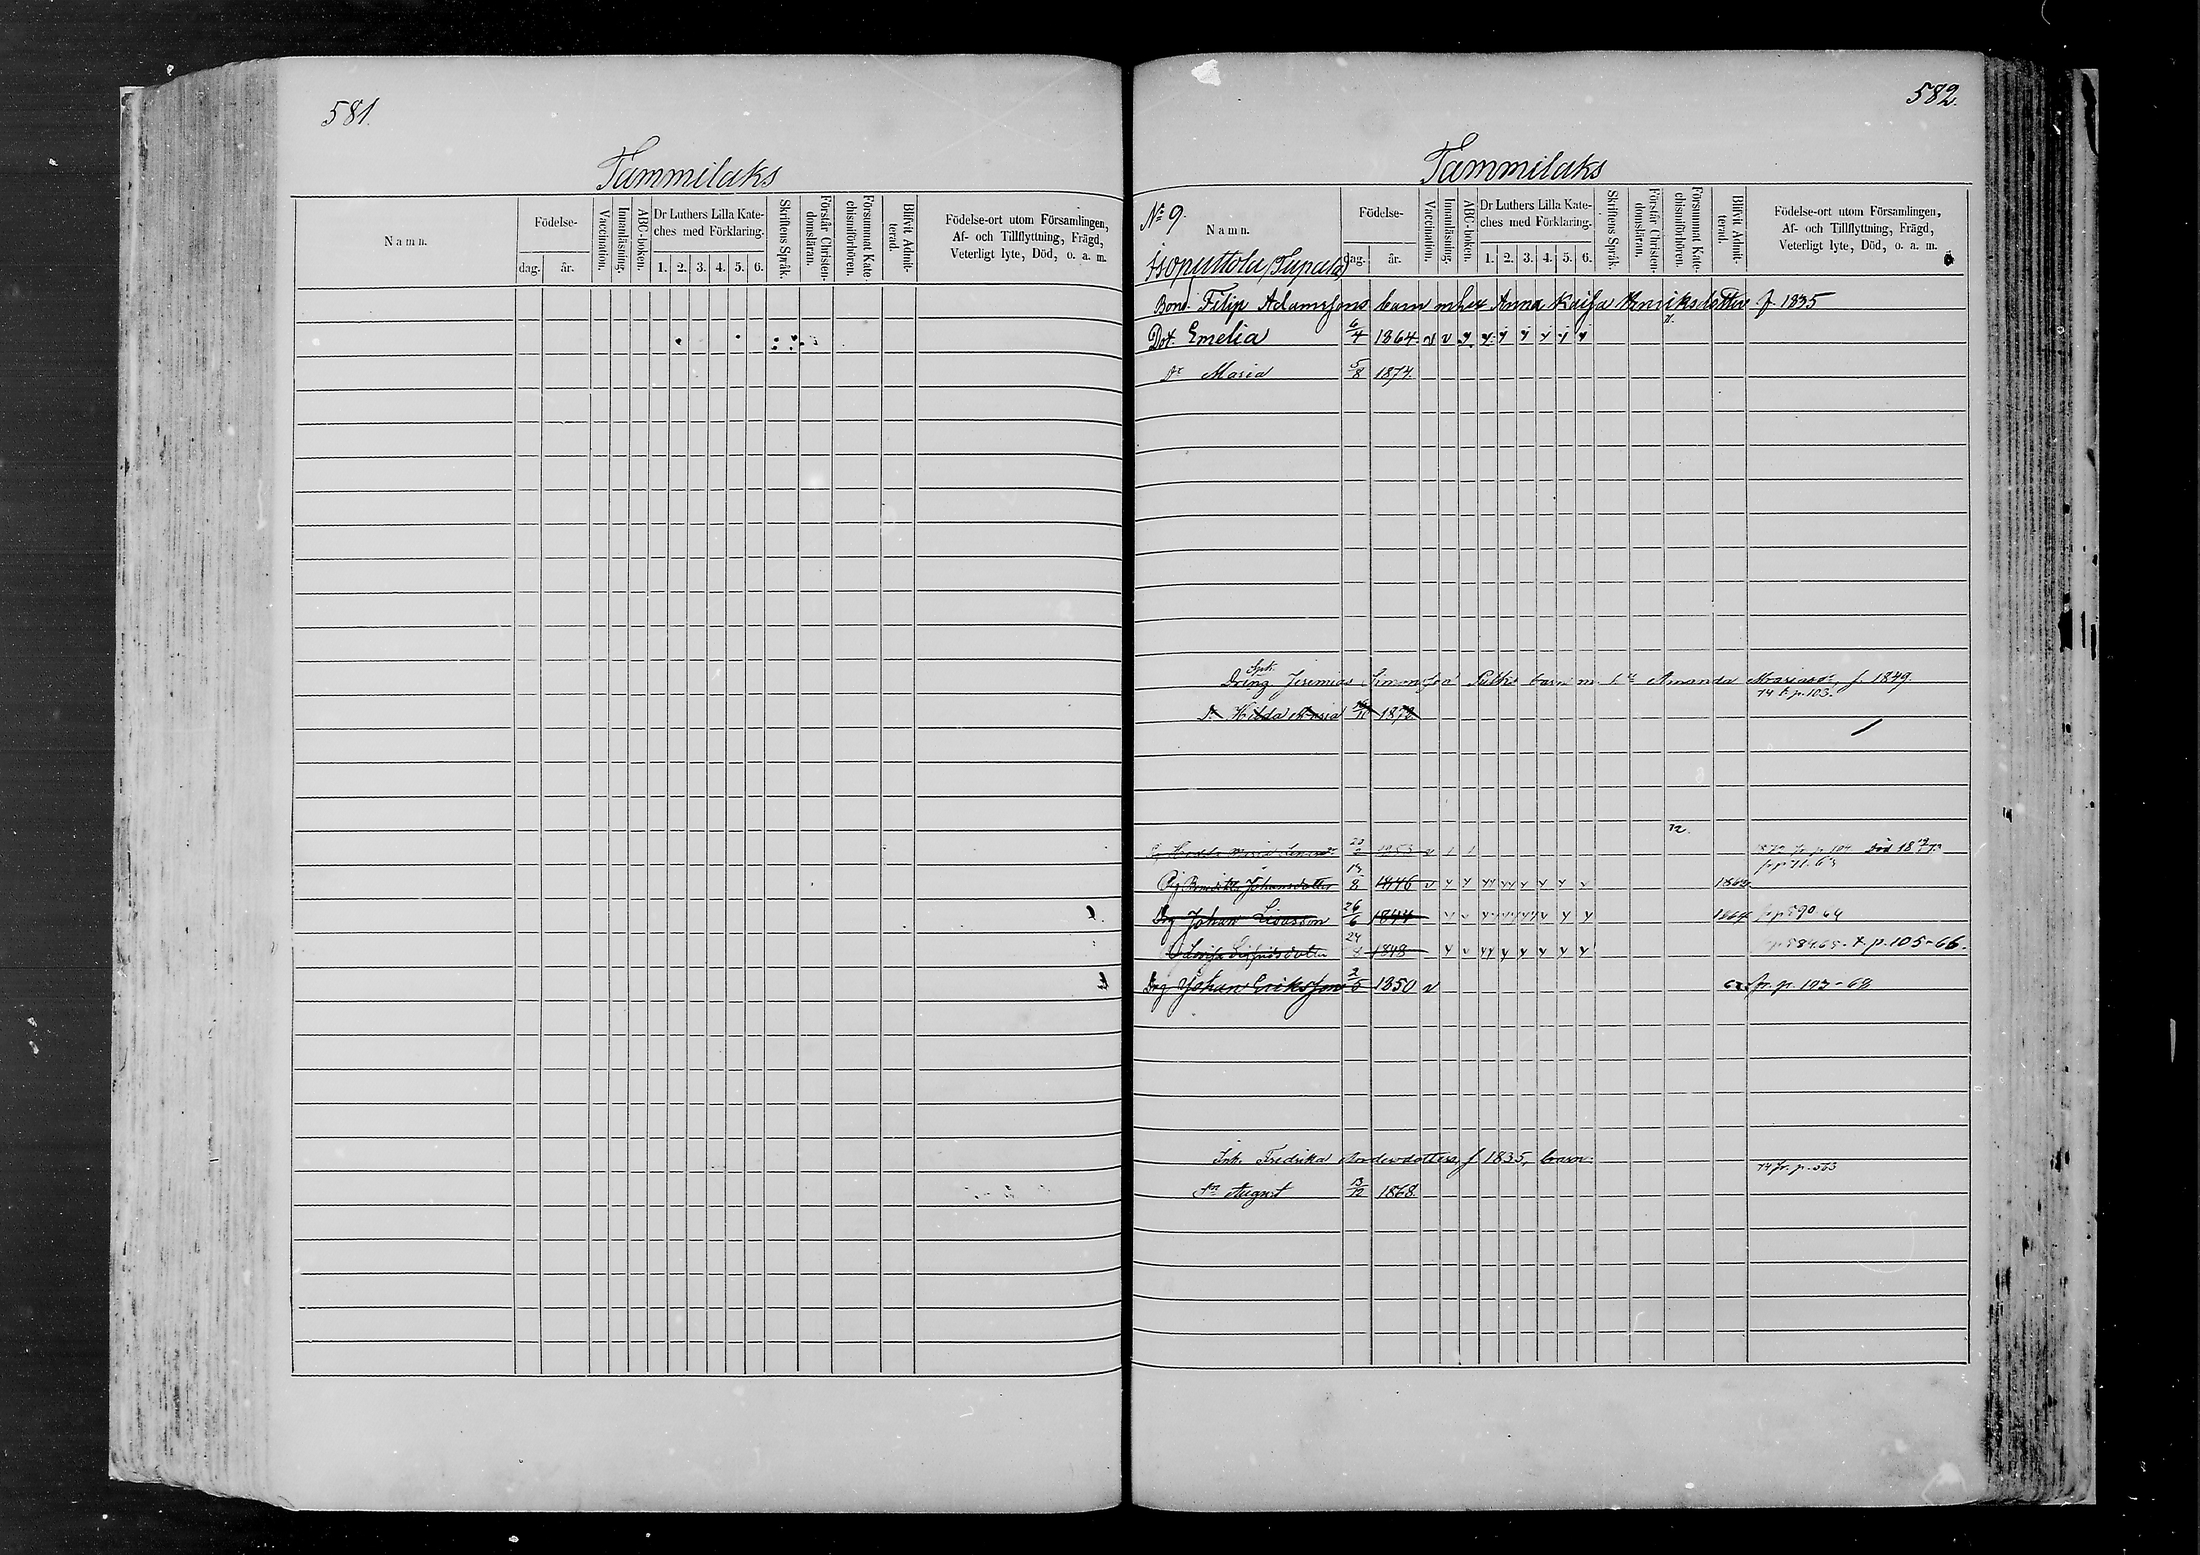 581.
Tammilaks
Namn.
Födelse-
dag.
år.
Vaccination.
Innanläsning.
ABC-boken.
Dr Luthers Lilla Kate-
ches med Förklaring.
1. 2. 3. 4. 5. 6.
Skriftens Språk.
Förstår Christen-
domsläran.
Försummat Kate-
chismiförhören.
Blifvit Admit-
terad.
Födelse-ort utom Församlingen,
Af- och Tillflyttning, Frägd,
Veterligt lyte, Död, o. a. m.
582.
Tammilaks
No 9.
Namn.
Födelse-
dag.
år.
Vaccination.
Innanläsning.
ABC-boken.
Dr Luthers Lilla Kate-
ches med Förklaring.
1. 2. 3. 4. 5. 6.
Skriftens Språk.
Förstår Christen-
domsläran.
Försummat Kate-
chismiförhören.
Blifvit Admit-
terad.
Födelse-ort utom Församlingen,
Af- och Tillflyttning, Frägd,
Veterligt lyte, Död, o. a. m.
Isoputtola (Tupala)
Bond. Filip Adamssons barn m hu Anna Kaisa Henriksdotter f 1835
Dot. Emelia 6/4 1864 v v y y y y y y y
Dr Maria 5/8 1874.
Dräng Jeremias Simonsson barn m. Amanda f 1849.
74 t. p. 103.
Dr Hilda Maria 1872
72.
Maria 1853 v död
Pig Johansdotter 8 1846 v y y y y y y y y 1863
Drg Johan 26/6 1844 1864 fr p 590-64
Lovisa Sigfridsdotter 24 1848 t. p. 105-66.
Drg Johan Eriksson 2/5 1850 v fr. p. 103-68
Ink. Fredrika Andersdotters, f 1835, barn:
74 fr. p. 563
Sn August 13/12 1868.